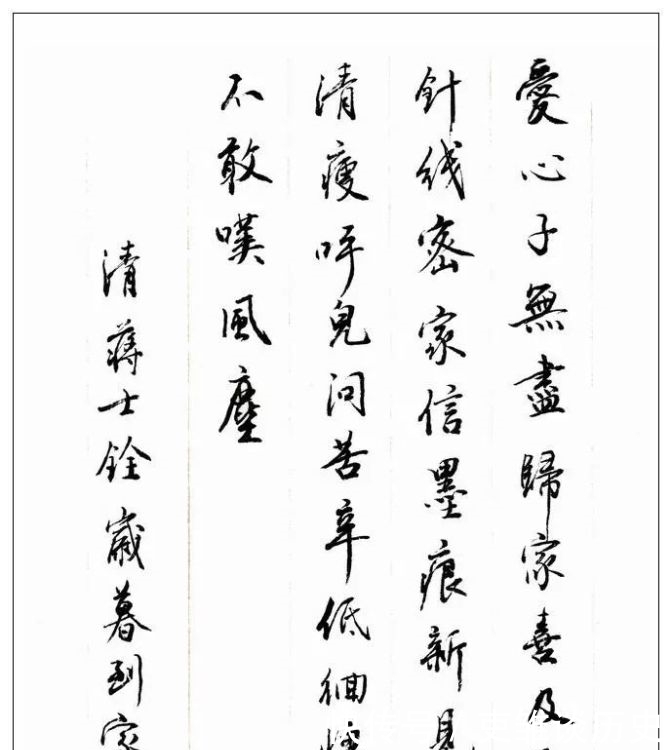 愛心子無盡歸家喜及
針綫密家信墨痕新見
清瘦呼兒問苦辛低徊愧
不敢嘆風塵
清蔣士銓歲暮到家